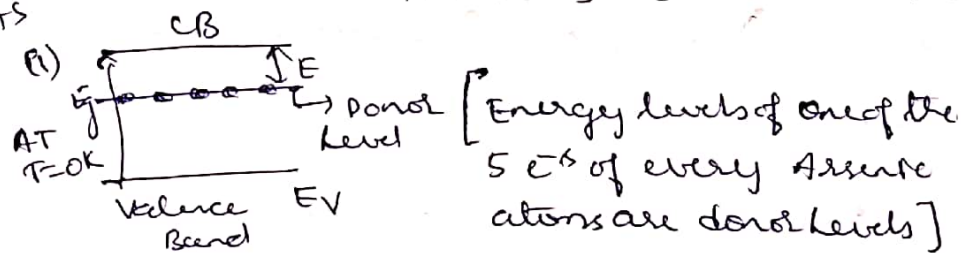 TS
CB
(i)
E
Eg
Donor
Level
AT
T=0K
Valence
Band
EV
[Energy levels of one of the
5 e⁻s of every Arsenic
atoms are donor levels]